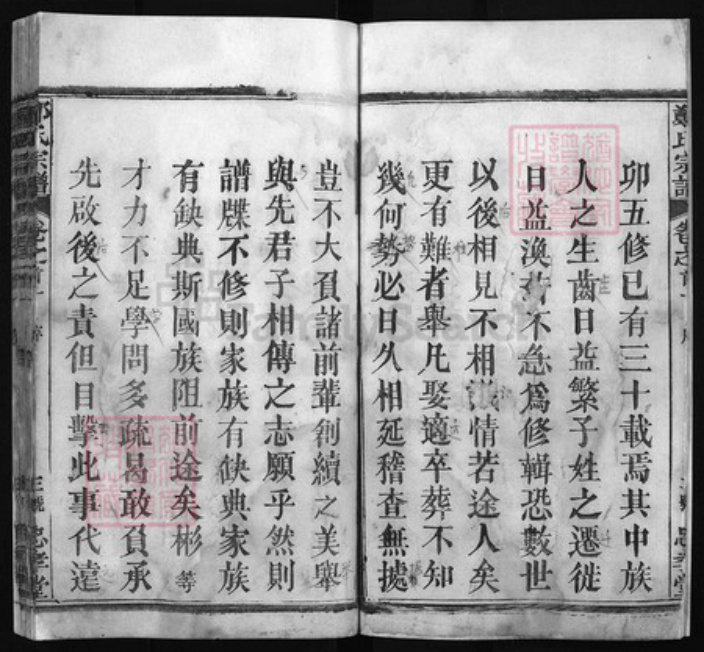 卯五修已有三十載焉其中族
人之生齒日益繁子姓之遷徙
日益渙若不急爲修輯恐數世
以後相見不相識情若途人矣
更有難者舉凡娶適卒葬不知
幾何勢必日久相延稽查無據
豈不大負諸前輩創續之美舉
與先君子相傳之志願乎然則
譜牒不修則家族有缺典家族
有缺典斯國族阻前途矣彬等
才力不足學問多疏曷敢負承
先啟後之責但目擊此事代遠
鄭氏宗譜
卷之首一
序
忠孝堂
FamilySearch